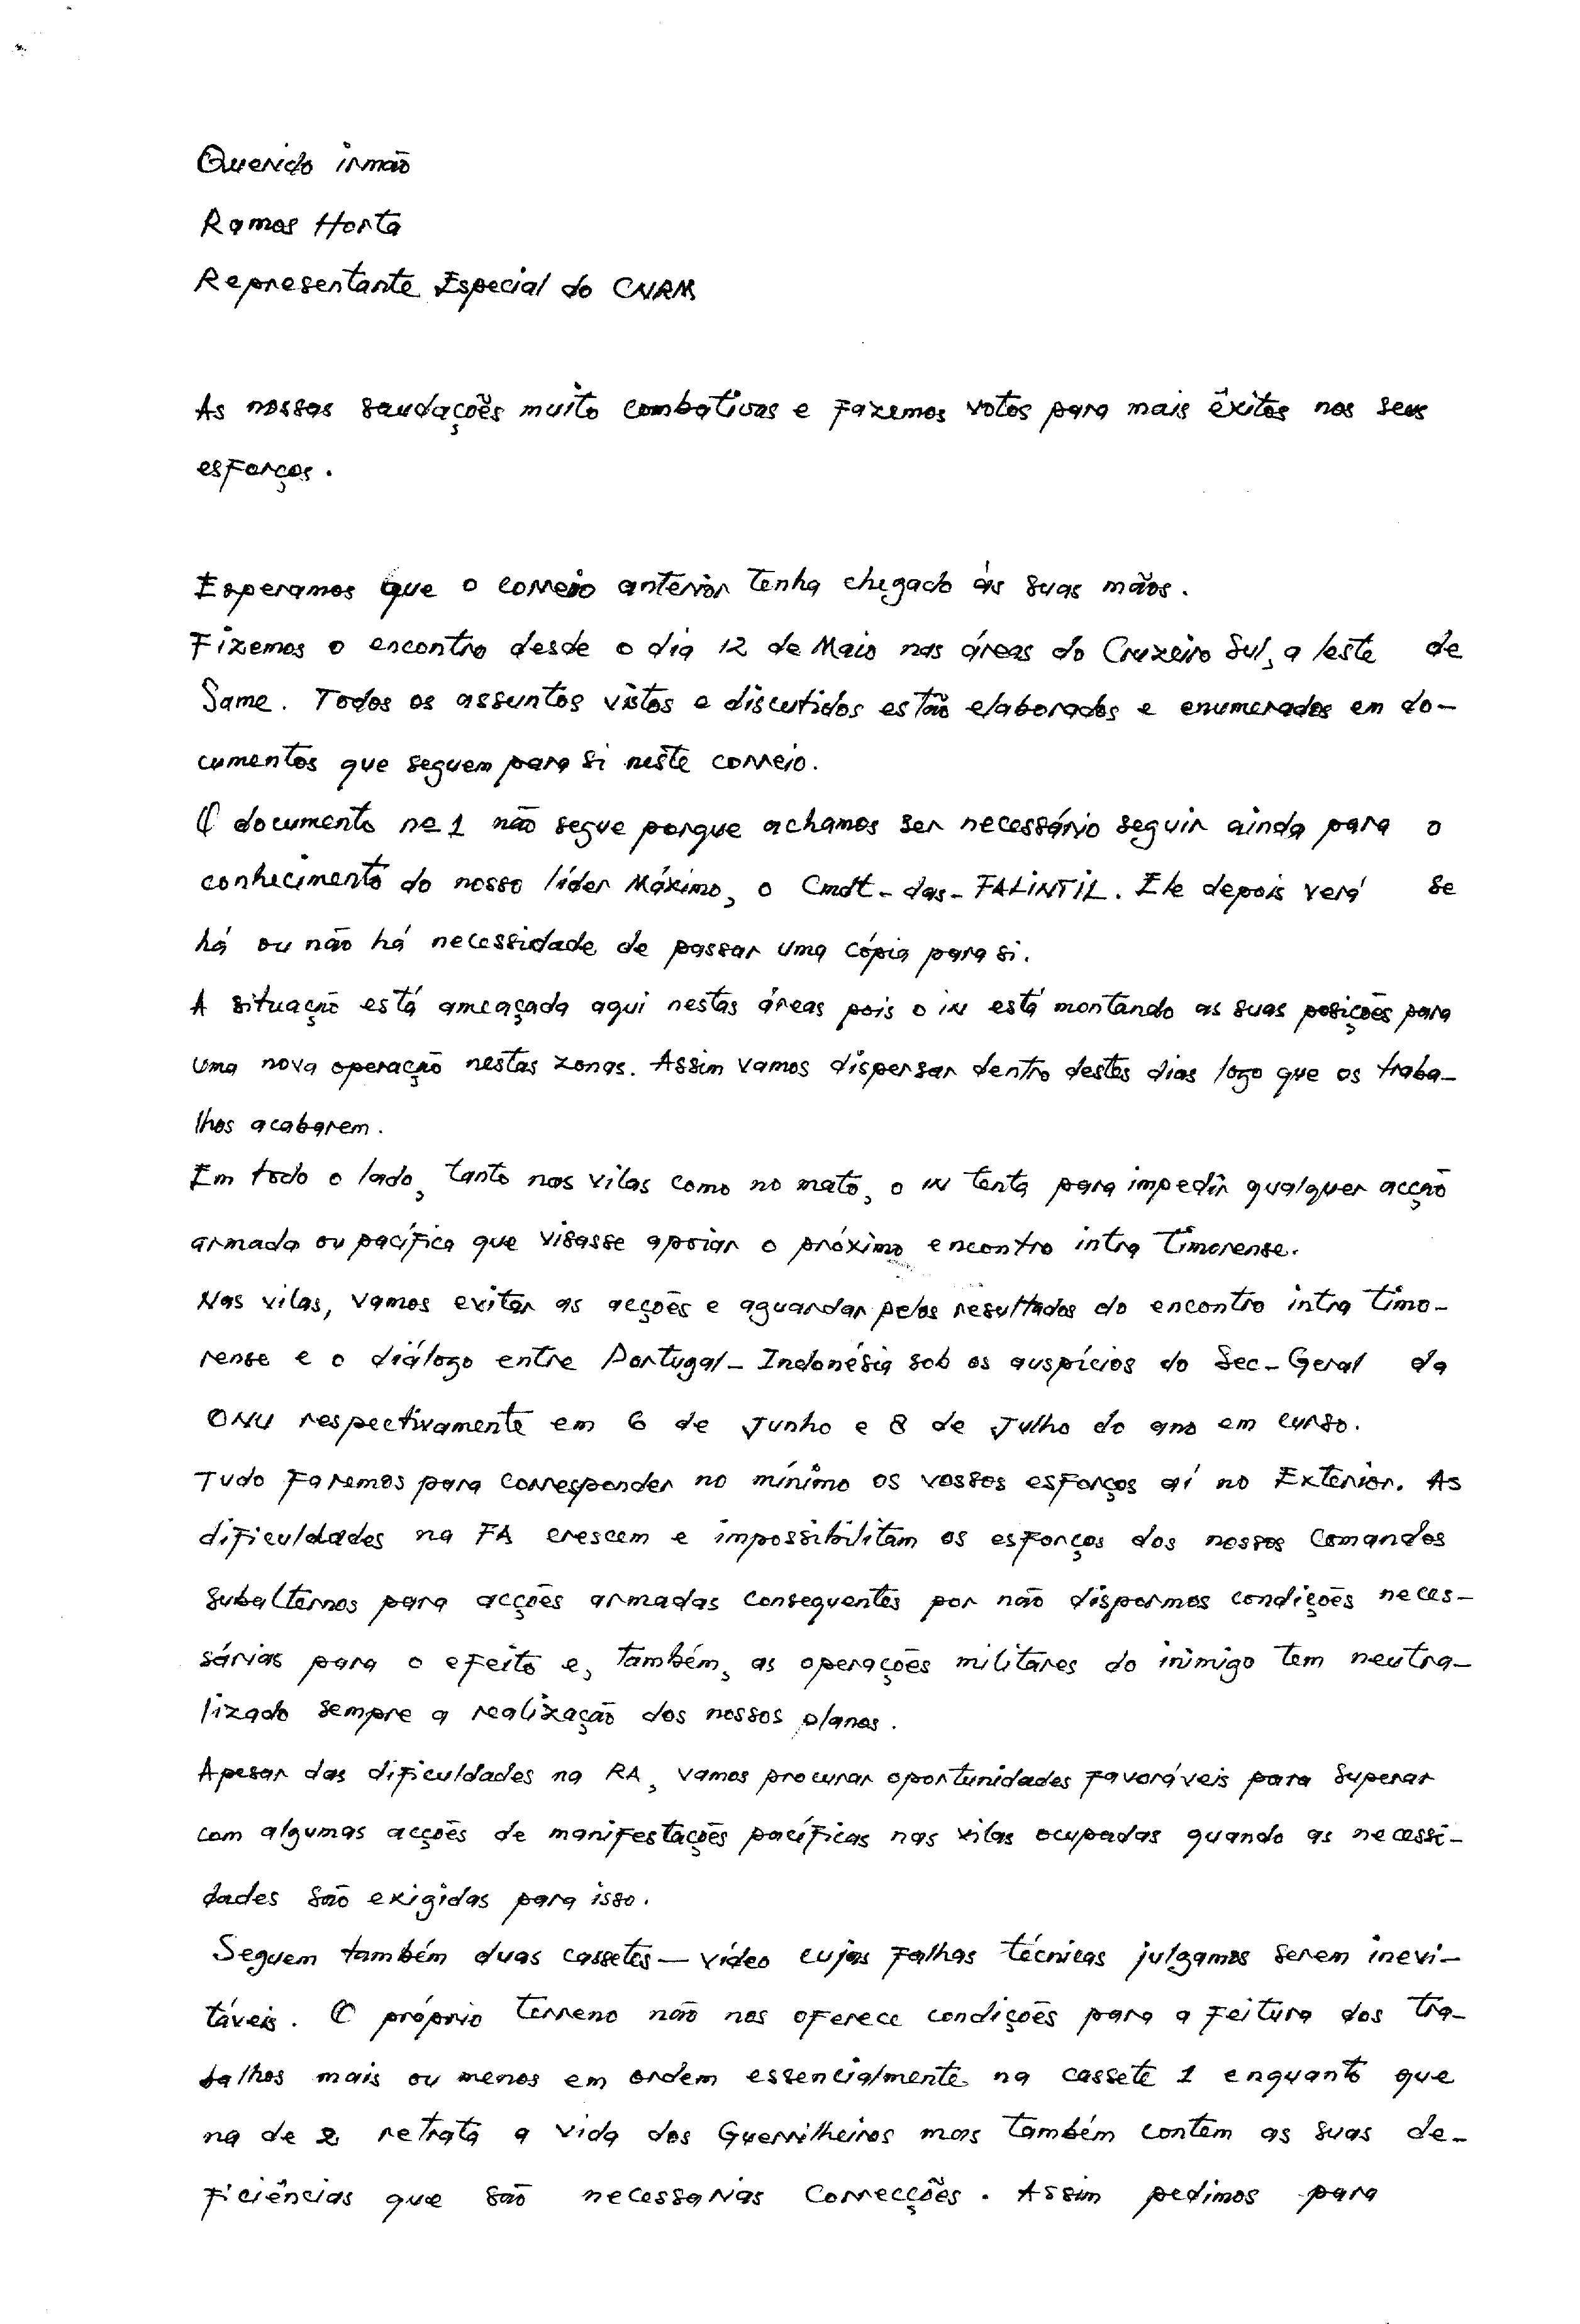 Querido irmão
Ramos Horta
Representante Especial do CNRM
As nossas saudações muito combativas e fazemos votos para mais êxitos nos seus
esforços.
Esperamos que o correio anterior tenha chegado às suas mãos.
Fizemos o encontro desde o dia 12 de Maio nas áreas do Cruzeiro Sul, a leste de
Same. Todos os assuntos vistos e discutidos estão elaborados e enumerados em do-
cumentos que seguem para si neste correio.
O documento nº 1 não segue porque achamos ser necessário seguir ainda para o
conhecimento do nosso líder Máximo, o Cmdt-das-FALINTIL. Ele depois verá se
há ou não há necessidade de passar uma cópia para si.
A situação está ameaçada aqui nestas áreas pois o IN está montando as suas posições para
uma nova operação nestas zonas. Assim vamos dispersar dentro destes dias logo que os traba-
lhos acabarem.
Em todo o lado, tanto nas vilas como no mato, o IN tenta para impedir qualquer acção
armada ou pacífica que visasse apoiar o próximo encontro intra timorense.
Nas vilas, vamos evitar as acções e aguardar pelos resultados do encontro intra timo-
rense e o diálogo entre Portugal-Indonésia sob os auspícios do Sec-Geral da
ONU respectivamente em 6 de Junho e 8 de Julho do ano em curso.
Tudo faremos para corresponder no mínimo os vossos esforços aí no Exterior. As
dificuldades na FA crescem e impossibilitam os esforços dos nossos Comandos
subalternos para acções armadas consequentes por não dispormos condições neces-
sárias para o efeito e, também, as operações militares do inimigo tem neutra-
lizado sempre a realização dos nossos planos.
Apesar das dificuldades na RA, vamos procurar oportunidades favoráveis para superar
com algumas acções de manifestações pacíficas nas vilas ocupadas quando as necessi-
dades são exigidas para isso.
Seguem também duas cassetes-vídeo cujas falhas técnicas julgamos serem inevi-
táveis. O próprio terreno não nos oferece condições para a feitura dos tra-
balhos mais ou menos em ordem essencialmente na cassete 1 enquanto que
na de 2 retrata a vida dos Guerrilheiros mas também contém as suas de-
ficiências que são necessarias correcções. Assim pedimos para